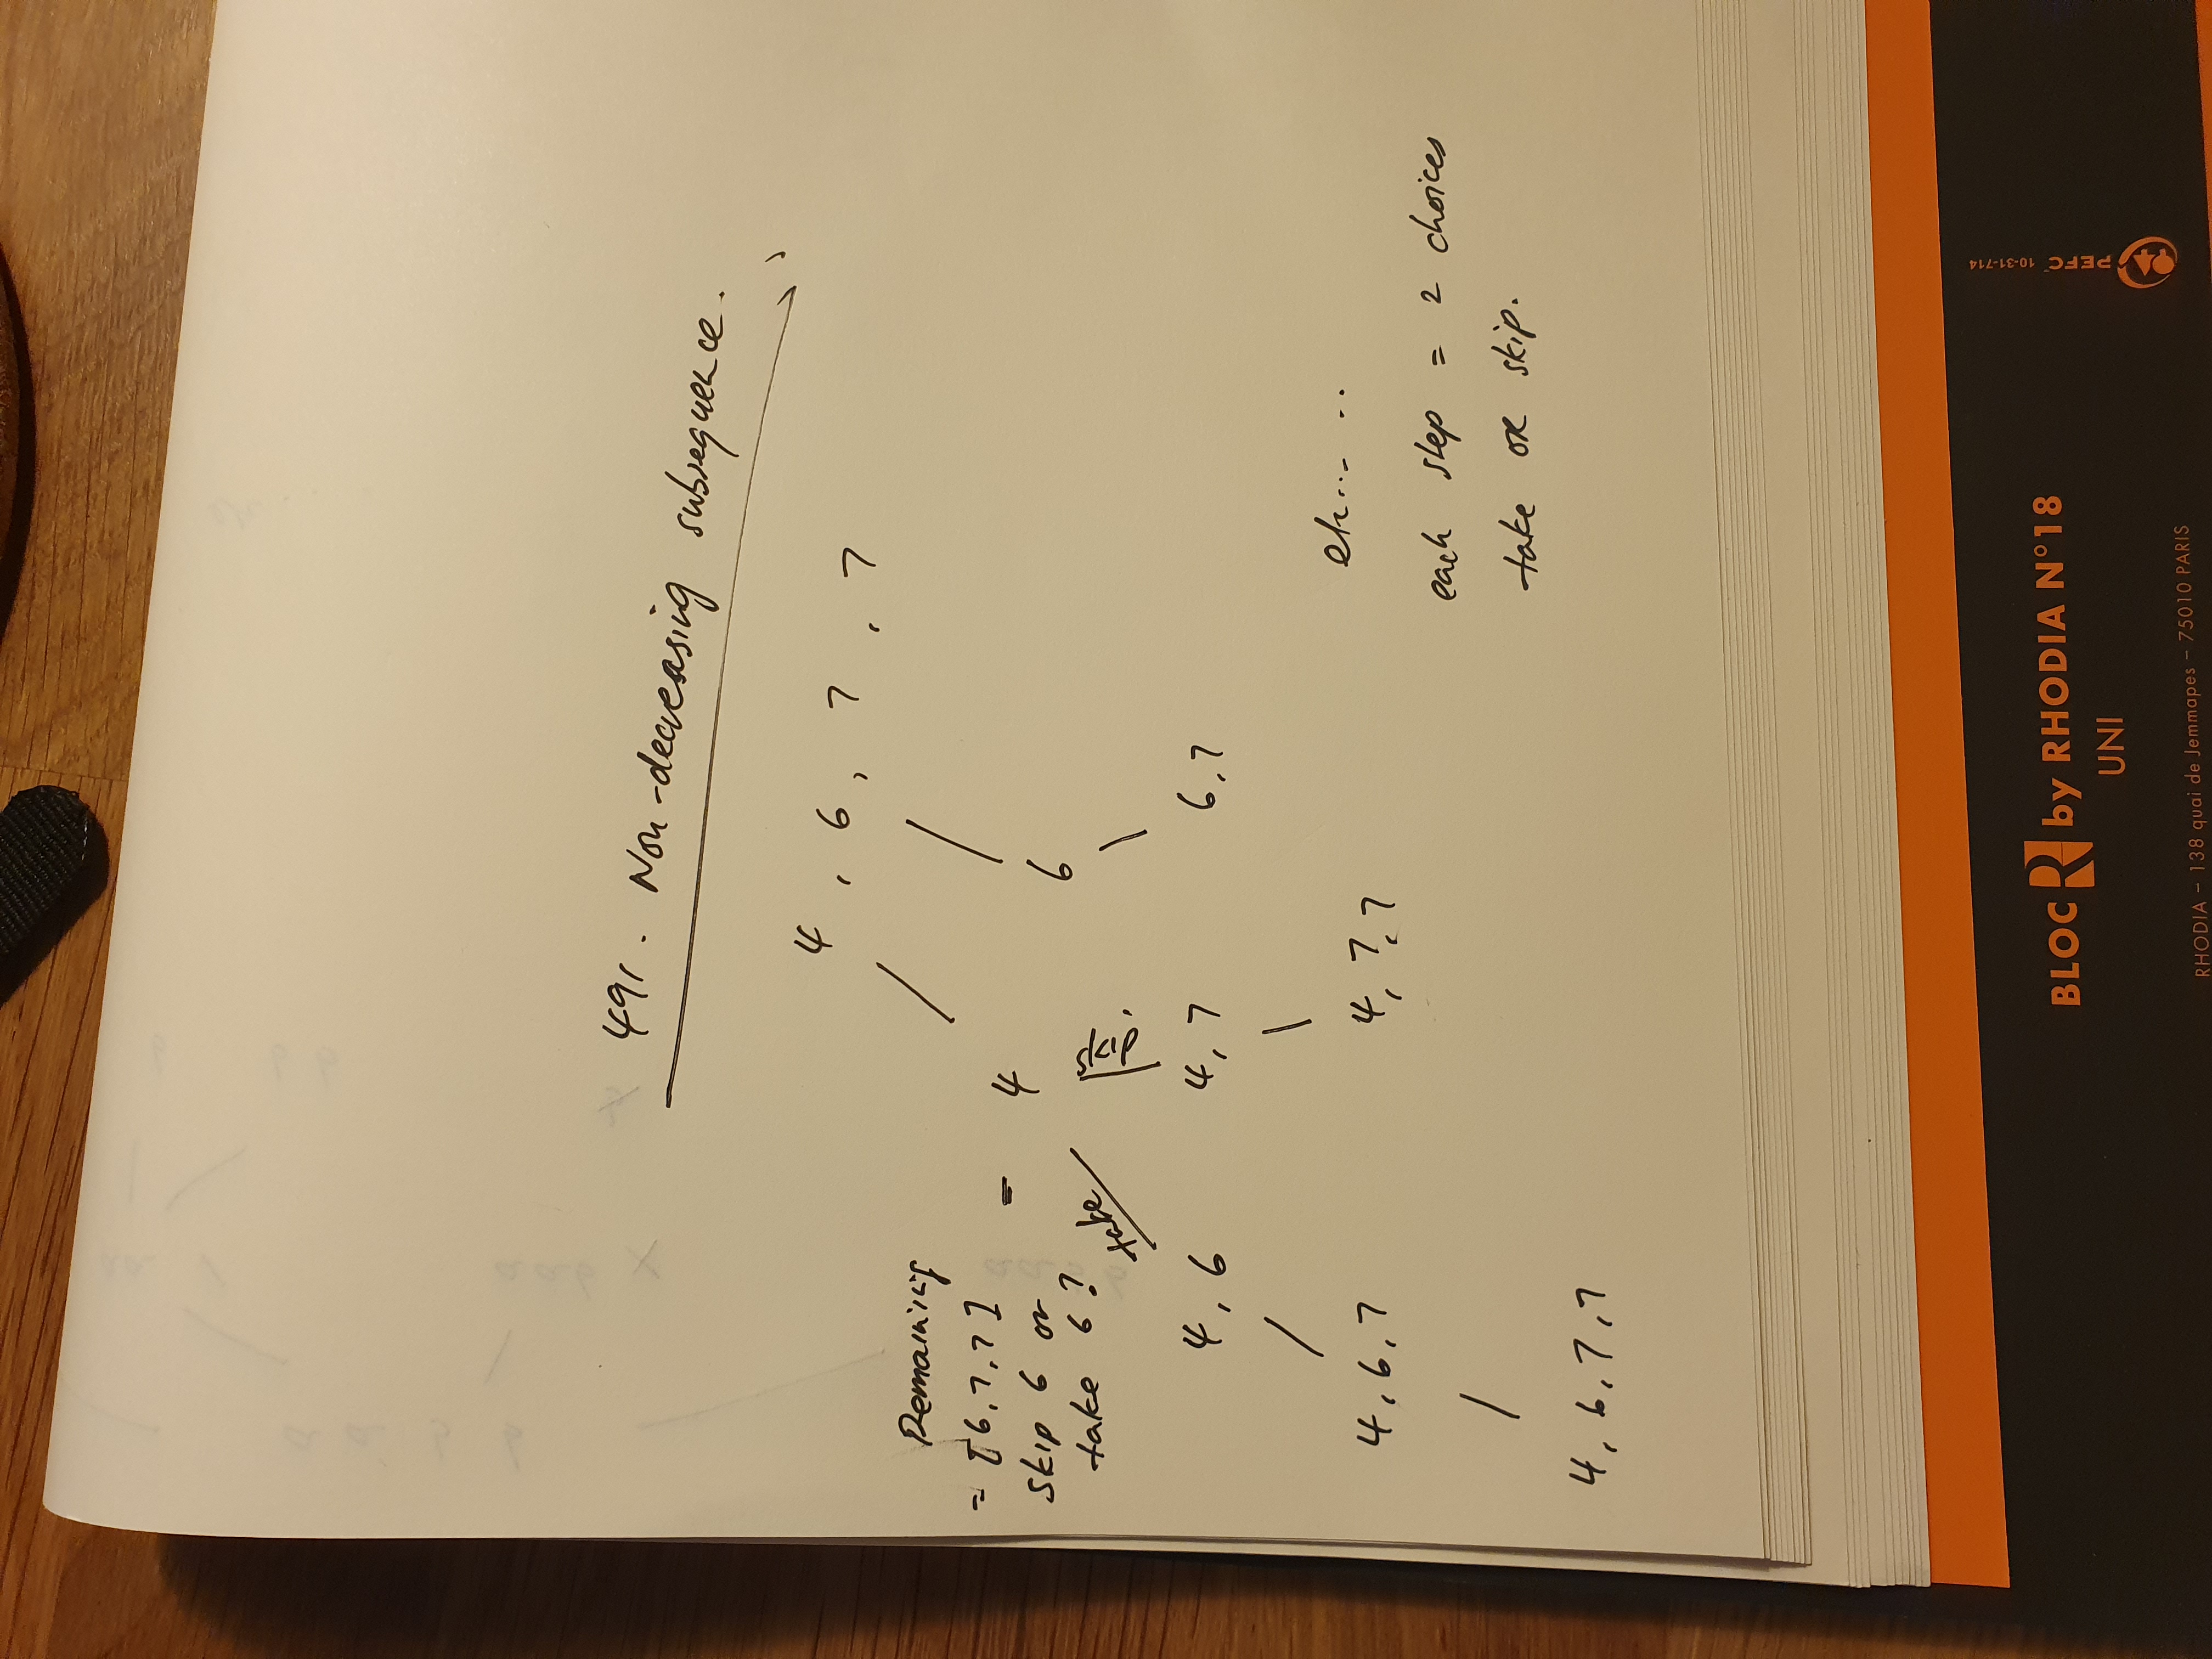 491. Non-decreasing subsequence.
4, 6, 7, 7
Remaining
= [6,7,7]
skip 6 or
take 6?
- 4
6
take
skip.
4, 6
4, 7
6,7
4,6,7
4,7,7
etc.... ..
each step = 2 choices
take OR skip.
4,6,7,7
BLOC R by RHODIA N°18
UNI
RHODIA – 138 quai de Jemmapes – 75010 PARIS
PEFC 10-31-714